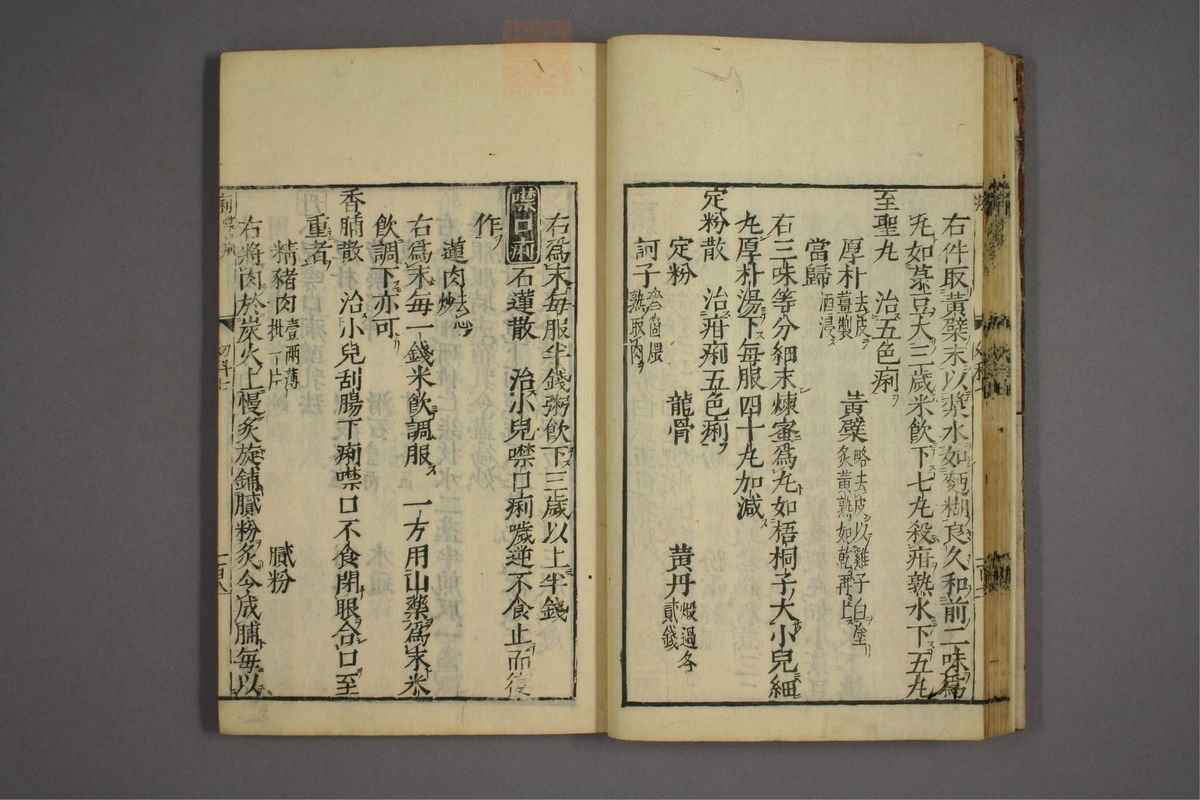 右件取黃蘗末以漿水如麪糊良久和前二味爲
丸如菉豆大三歲米飲下七丸殺疳熟水下五丸
至聖丸 治五色痢
厚朴去皮薑製 黃蘗略去皮以雞子白塗炙黃熟如乾再上
當歸酒浸
右三味等分細末煉蜜爲丸如梧桐子大小兒細
丸厚朴湯下每服四十丸加減
定粉散 治疳痢五色痢
定粉 龍骨 黃丹煅過各貳錢
訶子叁箇煨熟取肉
右爲末每服半錢粥飲下三歲以上半錢
噤口痢 石蓮散 治小兒噤口痢噦逆不食止而復
作
蓮肉去心炒
右爲末每一錢米飲調服 一方用山藥爲末米
飲調下亦可
香脯散 治小兒刮腸下痢噤口不食閉眼合口至
重者
精豬肉壹兩薄批一片 膩粉
右將肉於炭火上慢炙旋鋪膩粉炙令成脯每以